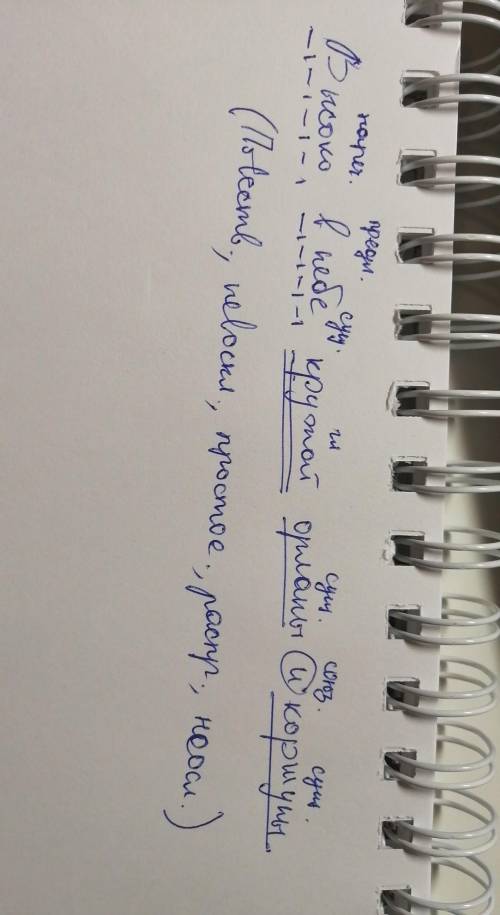 нареч. предл. сущ. гл сущ. союз. сущ.
Высоко в небе кружат орланы и коршуны
(Повеств., невоскл., простое., распр., неосл.)